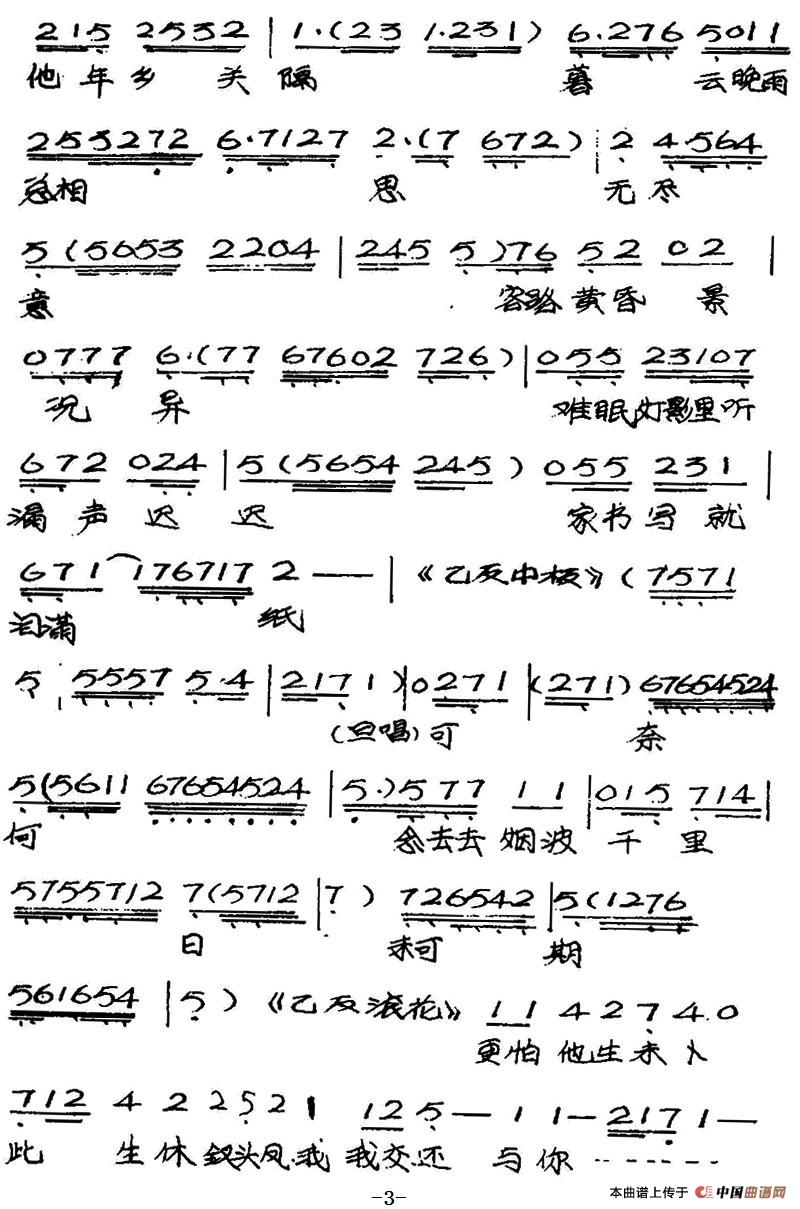 215 2532 | 1·(23 1·231) 6·276 5011
他年乡 关 隔 暮 云晚雨
253272 6·7127 2·(7 672) | 2 4·564
总相 思 无尽
5(5653 2204 | 245 5)76 52 02 |
意 客路黄昏 景
0777 6·(77 67602 726) | 055 23107
况 异 难眠灯影里听
672 024 | 5(5654 245) 055 231 |
漏声迟 迟 家书写就
671 176717 2 — — | 《乙反中板》(7571
泪满 纸
5 5557 5·4 | 2171) | 0271 | (271) 67654524
(旦唱)可 奈
5(5611 67654524 | 5·)577 11 | 015 714 |
何 念去去 烟波 千 里
5755712 7(5712 | 7) 726542 | 5(1276
日 未可 期
561654 | 5) 《乙反滚花》 11 4 2 7 4·0
更怕他生未卜
712 4 2 2 5 2 1 12 5— 1 1— 217 1—
此 生休 钗头凤,我 我交还 与你 --------
-3-
本曲谱上传于 中国曲谱网